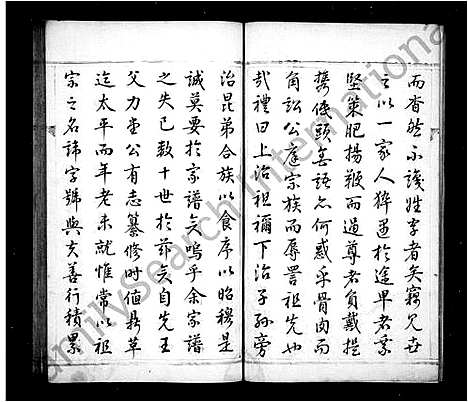 而杳然不識姓字者矣竊見世
之以一家人猝遇於途卑者乘
堅策肥揚鞭而過尊者負戴提
携低頭無語亦何惑乎骨肉而
角訟公庭宗族而辱詈祖先也
哉禮曰上治祖禰下治子孫旁
治昆弟合族以食序以昭穆是
誠莫要於家譜矣嗚乎余家譜
之失已數十世於茲矣自先王
父力壷公有志纂修時值鼎革
迄太平而年老未就惟常以祖
宗之名諱字號與夫善行積累
FamilySearch International